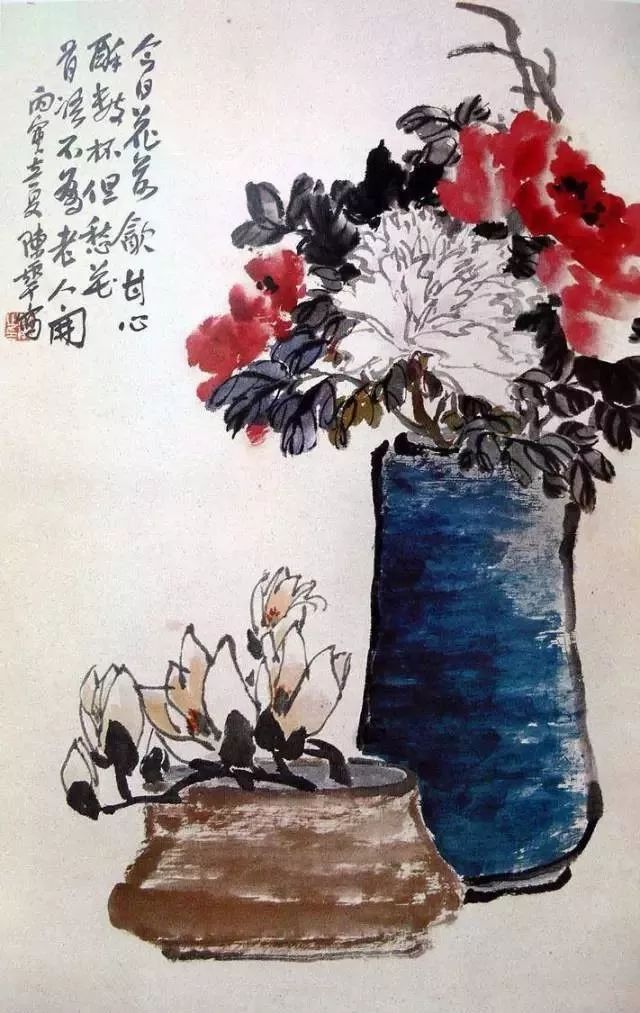 今日花前飲甘心
醉數杯但愁花
有語不為老人開
丙寅立夏陳寫